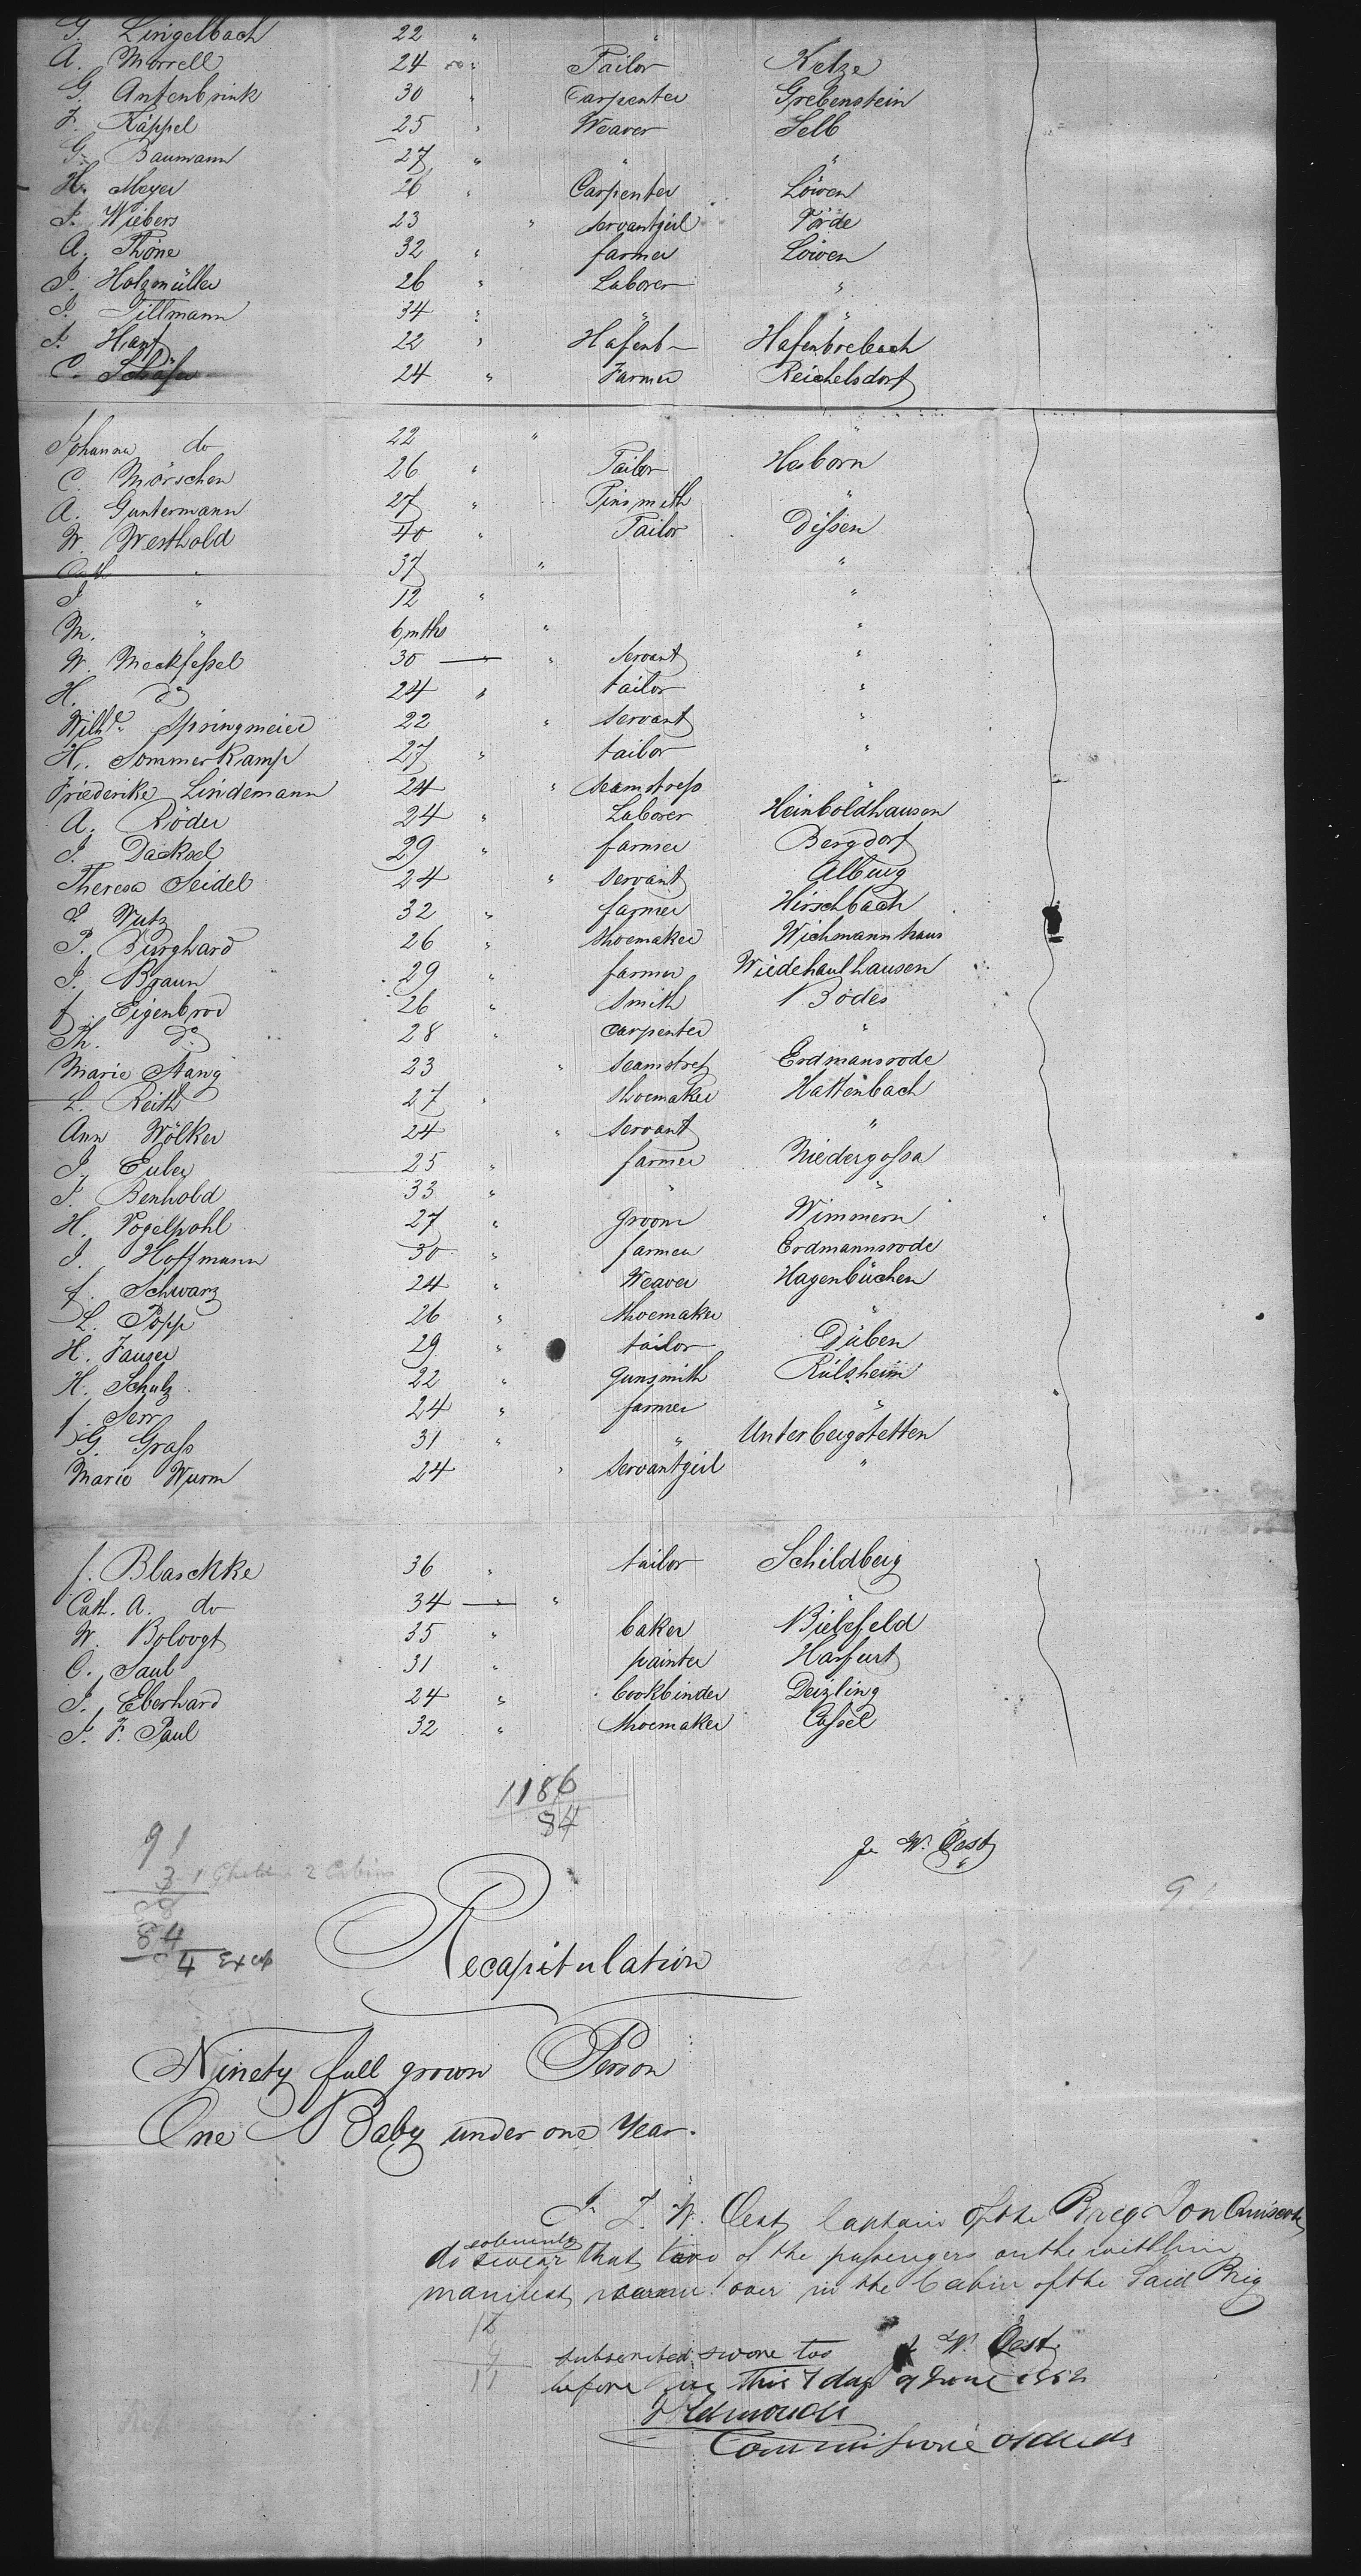 G. Lingelbach 22 " "
A. Morrell 24 " Tailor Ketze
G. Antenbrink 30 " Carpenter Grebenstein
F. Käppel 25 " Weaver Selb
G. Baumann 27 " " "
H. Meyer 26 " Carpenter Löwen
F. Wiebers 23 " servantgirl Vörde
A. Thöne 32 " farmer Löwen
J. Holzmüller 26 " Laborer "
J. Tillmann 34 " " "
J. Hanf 22 " Hafenb- Hafenbrebach
C. Schäfer 24 " Farmer Reichelsdorf
Johanna do 22 " "
C. Mörschen 26 " Tailor Hesborn
A. Guntermann 27 " Tinsmith "
W. Westhold 40 " Tailor Dissen
Cath. " 37 " "
J. " 12 " "
M. " 6 mths " "
W. Meckfessel 30 " " Servant "
H. do 24 " tailor "
Wilhe. Springmeier 22 " servant "
H. Sommerkamp 27 " tailor "
Friederike Lindemann 24 " seamstress "
A. Röder 24 " Laborer Heinboldhausen
J. Dacksel 29 " farmer Bergdorf
Theresa Seidel 24 " servant Alburg
J. Wutz 32 " farmer Hirschbach
P. Burghard 26 " shoemaker Wichmannhaus
J. Braun 29 " farmer Wiedehaulhausen
f. Eigenbrod 26 " smith Bodes
Th. do 28 " carpenter "
Marie Stang 23 " seamstress Erdmansrode
L. Reith 27 " shoemaker Hattenbach
Ann Wölker 24 " servant "
J. Euler 25 " farmer Niedergossa
J. Benhold 33 " " "
H. Vogelpohl 27 " groom Wimmern
J. Hoffmann 30 " farmer Erdmannsrode
f. Schwarz 24 " Weaver Hagenbüchen
L. Popp 26 " shoemaker "
H. Fauser 29 " tailor Düben
H. Schulz 22 " gunsmith Rülsheim
f. Serr 24 " farmer "
G. Grass 31 " " Unterbergstetten
Marie Wurm 24 " servantgirl "
f. Blaschke 36 " tailor Schildberg
Cath. A. do 34 " "
W. Bolovgt 35 " baker Bielefeld
C. Saul 31 " painter Hasfurt
J. Eberhard 24 " bookbinder Deizling
J. F. Paul 32 " shoemaker Cassel
1186
84
J. W. Oest
91
3 1 Child 2 Cabin
88
84
4 Excp
Recapitulation
Ninety full grown Person
One Baby under one Year.
I J. W. Oest Captain of the Brig Don Quisote
do solemnly swear that two of the passengers on the withhin
manifest came over in the Cabin of the Said Brig
subscribed swore too J. W. Oest
before me this 7 day of June 1852
Edmonds
Commissione of deeds